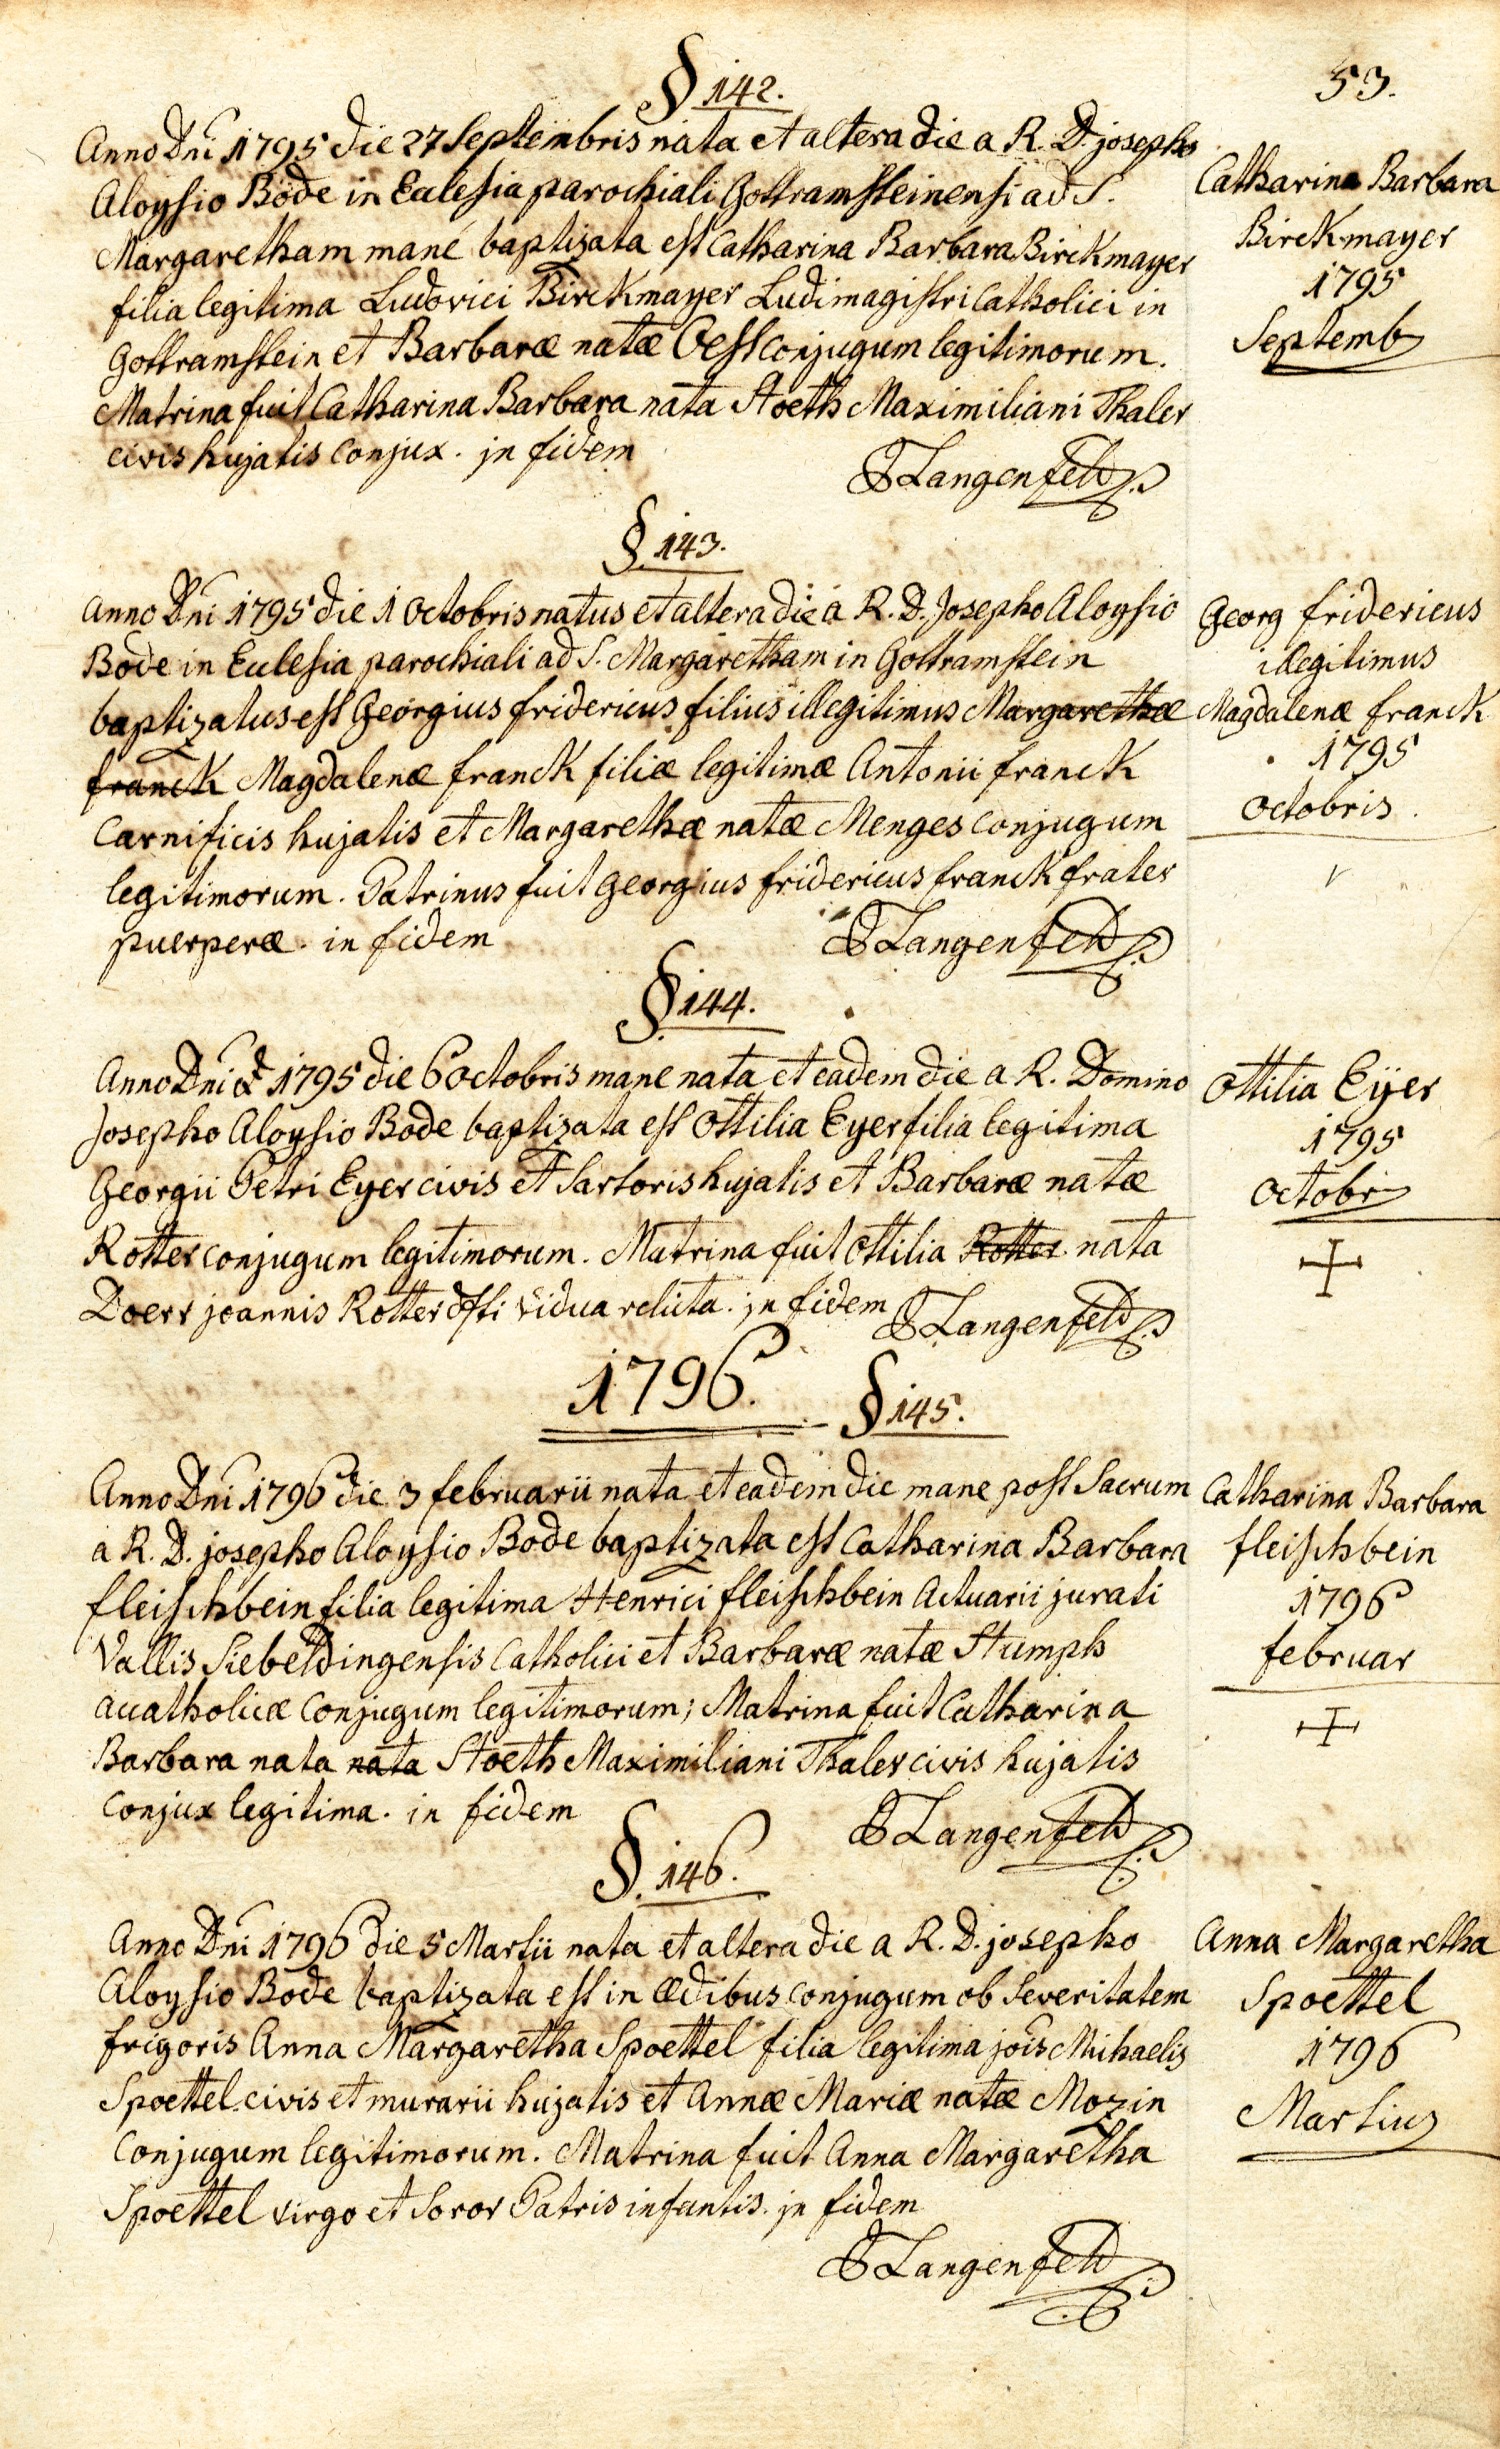 53.
§ 142.
Anno Dni 1795 die 27 Septembris nata et altera die a R. D. josepho
Aloysio Bode in Eclesia parochiali Gottramsteinensi ad S.
Margaretham mane baptizata est Catharina Barbara Birckmayer
filia legitima Ludovici Birckmayer Ludimagistri Catholici in
Gottramstein et Barbaræ natæ Oest conjugum legitimorum.
Matrina fuit Catharina Barbara nata Stoeth Maximiliani Thaler
civis hujatis conjux. jn fidem
Langenfeld
Catharina Barbara
Birckmayer
1795
Septemb
§. 143.
Anno Dni 1795 die 1 octobris natus et altera die a R. D. Josepho Aloysio
Bode in Eclesia parochiali ad S. Margaretham in Gottramstein
baptizatus est Georgius fridericus filius illegitimus Margarethæ
franck Magdalenæ franck filiæ legitimæ Antonii franck
Carnificis hujatis et Margarethæ natæ Menges conjugum
legitimorum. Patrinus fuit Georgius fridericus franck frater
puerperæ. in fidem
Langenfeld
Georg fridericus
illegitimus
Magdalenæ franck
1795
octobris.
§ 144.
Anno Dni 1795 die 6 octobris mane nata et eadem die a R. Domino
Josepho Aloysio Bode baptizata est ottilia Eyer filia legitima
Georgii Petri Eyer civis et Sartoris hujatis et Barbaræ natæ
Rotter conjugum legitimorum. Matrina fuit ottilia Rotter nata
Doerr joannis Rotter dfti vidua relicta. jn fidem
Langenfeld
ottilia Eÿer
1795
octobr
1796.
§ 145.
Anno Dni 1796 die 3 februarii nata et eadem die mane post Sacrum
a R. D. josepho Aloysio Bode baptizata est Catharina Barbara
fleischbein filia legitima Henrici fleischbein Actuarii jurati
Vallis Siebeldingensis Catholici et Barbaræ natæ Stumph
acatholicæ conjugum legitimorum; Matrina fuit Catharina
Barbara nata nata Stoeth Maximiliani Thaler civis hujatis
conjux legitima. in fidem
Langenfeld
Catharina Barbara
fleischbein
1796
februar
§. 146.
Anno Dni 1796 die 5 Martii nata et altera die a R. D. josepho
Aloysio Bode baptizata est in ædibus conjugum ob Severitatem
frigoris Anna Margaretha Spoettel filia legitima jois Michaelis
Spoettel civis et murarii hujatis et Annæ Mariæ natæ Mozin
conjugum legitimorum. Matrina fuit Anna Margaretha
Spoettel virgo et Soror Patris infantis. jn fidem
Langenfeld
Anna Margaretha
Spoettel
1796
Martius